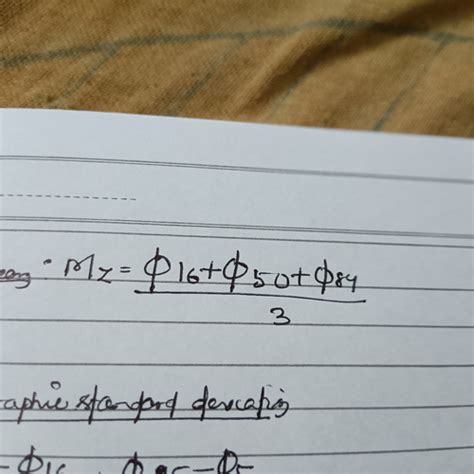 Mz = ϕ16+ϕ50+ϕ84
3
raphic standard deviation
ϕ16 ϕ95-ϕ5